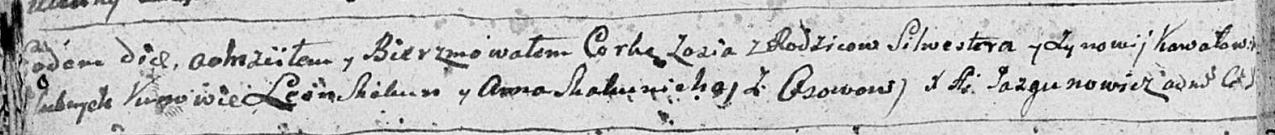 Eodem die, ochrziłem y Bierzmowałem Corkę Zosia z Rodzicow Silwestra y Zynowij Kowalow
Slubnych Kumowie Leon Skakun y Anna Skakunicha z Osowow X Ai Jazgunowicz